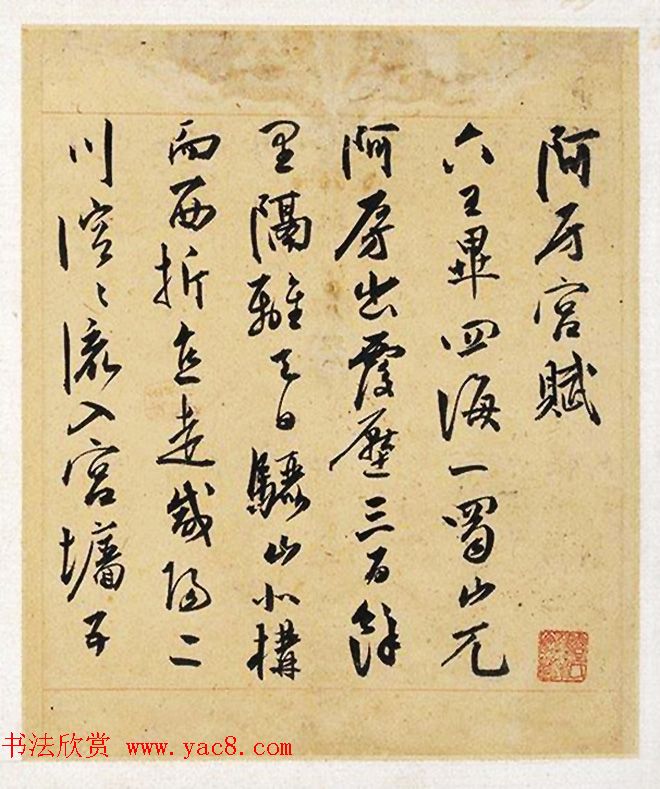 阿房宮賦
六王畢四海一蜀山兀
阿房出覆壓三百餘
里隔離天日驪山北構
而西折直走咸陽二
川溶〻流入宮墻五
书法欣赏 www.yac8.com